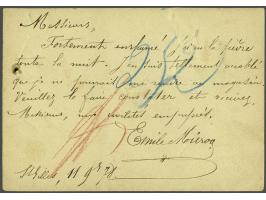 Messieurs,
Fortement enrhumé j'ai eu la fièvre
toute la nuit. J'en suis tellement accablé
que je ne pourrait me rendre au magasin
Veuillez le faire constater et recevez,
Messieurs, mes civilités empressées.
Emile
St Gilles, 11 9bre 78